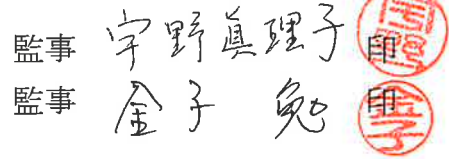 監事 宇野眞理子 印
監事 金子 勉 印
金子